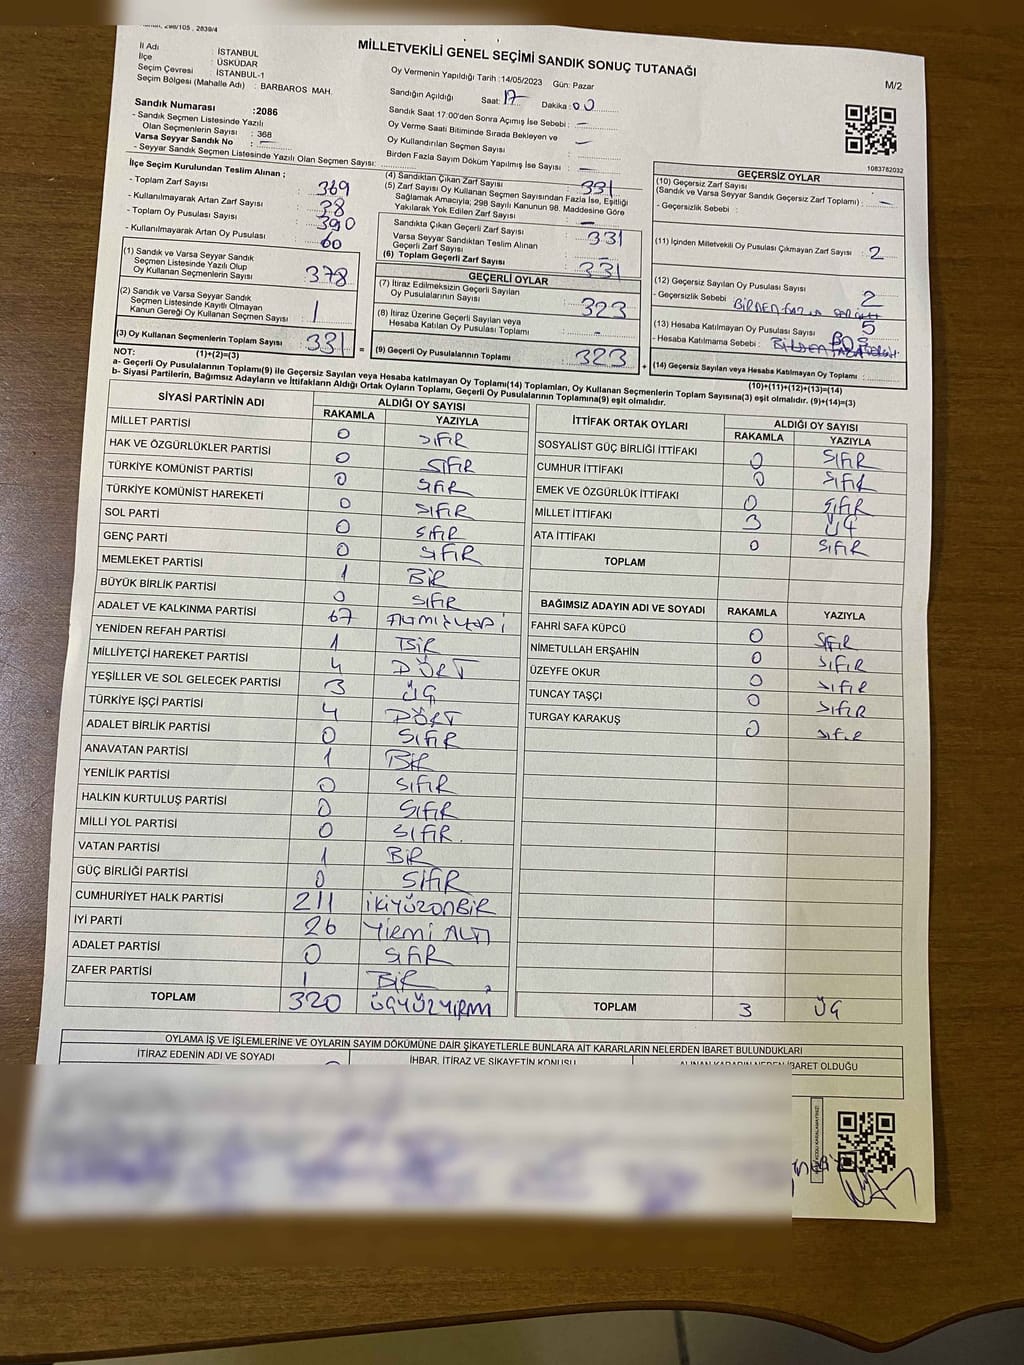 298/105, 2839/4
MİLLETVEKİLİ GENEL SEÇİMİ SANDIK SONUÇ TUTANAĞI
M/2
İl Adı : İSTANBUL
İlçe : ÜSKÜDAR
Seçim Çevresi : İSTANBUL-1
Seçim Bölgesi (Mahalle Adı) : BARBAROS MAH.
Oy Vermenin Yapıldığı Tarih :14/05/2023 Gün: Pazar
Sandığın Açıldığı Saat: 17 Dakika : 00
Sandık Saat 17:00'den Sonra Açımış İse Sebebi : —
Oy Verme Saati Bitiminde Sırada Bekleyen ve
Oy Kullandırılan Seçmen Sayısı : —
Birden Fazla Sayım Döküm Yapılmış İse Sayısı : —
Sandık Numarası :2086
- Sandık Seçmen Listesinde Yazılı
Olan Seçmenlerin Sayısı : 368
Varsa Seyyar Sandık No : —
- Seyyar Sandık Seçmen Listesinde Yazılı Olan Seçmen Sayısı:
1083782032
İlçe Seçim Kurulundan Teslim Alınan ;
- Toplam Zarf Sayısı 369
- Kullanılmayarak Artan Zarf Sayısı 38
- Toplam Oy Pusulası Sayısı 390
- Kullanılmayarak Artan Oy Pusulası 60
(1) Sandık ve Varsa Seyyar Sandık
Seçmen Listesinde Yazılı Olup
Oy Kullanan Seçmenlerin Sayısı 378
(2) Sandık ve Varsa Seyyar Sandık
Seçmen Listesinde Kayıtlı Olmayan
Kanun Gereği Oy Kullanan Seçmen Sayısı 1
(3) Oy Kullanan Seçmenlerin Toplam Sayısı 331 =
(4) Sandıktan Çıkan Zarf Sayısı 331
(5) Zarf Sayısı Oy Kullanan Seçmen Sayısından Fazla İse, Eşitliği
Sağlamak Amacıyla; 298 Sayılı Kanunun 98. Maddesine Göre
Yakılarak Yok Edilen Zarf Sayısı —
Sandıkta Çıkan Geçerli Zarf Sayısı 331
Varsa Seyyar Sandıktan Teslim Alınan
Geçerli Zarf Sayısı —
(6) Toplam Geçerli Zarf Sayısı 331
GEÇERLİ OYLAR
(7) İtiraz Edilmeksizin Geçerli Sayılan
Oy Pusulalarının Sayısı 323
(8) İtiraz Üzerine Geçerli Sayılan veya
Hesaba Katılan Oy Pusulası Toplamı -
(9) Geçerli Oy Pusulalarının Toplamı 323 +
GEÇERSİZ OYLAR
(10) Geçersiz Zarf Sayısı
(Sandık ve Varsa Seyyar Sandık Geçersiz Zarf Toplamı) : —
- Geçersizlik Sebebi :
(11) İçinden Milletvekili Oy Pusulası Çıkmayan Zarf Sayısı : 2
(12) Geçersiz Sayılan Oy Pusulası Sayısı 2
- Geçersizlik Sebebi BİRDEN FAZLA
(13) Hesaba Katılmayan Oy Pusulası Sayısı 5
- Hesaba Katılmama Sebebi :
(14) Geçersiz Sayılan veya Hesaba Katılmayan Oy Toplamı :
NOT: (1)+(2)=(3)
(10)+(11)+(12)+(13)=(14)
a- Geçerli Oy Pusulaları Toplamı(9) ile Geçersiz Sayılan veya Hesaba katılmayan Oy Toplamı(14) Toplamları, Oy Kullanan Seçmenlerin Toplam Sayısına(3) eşit olmalıdır. (9)+(14)=(3)
b- Siyasi Partilerin, Bağımsız Adayların ve İttifakların Aldığı Ortak Oyların Toplamı, Geçerli Oy Pusulalarının Toplamına(9) eşit olmalıdır.
SİYASİ PARTİNİN ADI ALDIĞI OY SAYISI
RAKAMLA YAZIYLA
MİLLET PARTİSİ 0 SIFIR
HAK VE ÖZGÜRLÜKLER PARTİSİ 0 SIFIR
TÜRKİYE KOMÜNİST PARTİSİ 0 SIFIR
TÜRKİYE KOMÜNİST HAREKETİ 0 SIFIR
SOL PARTİ 0 SIFIR
GENÇ PARTİ 0 SIFIR
MEMLEKET PARTİSİ 1 BİR
BÜYÜK BİRLİK PARTİSİ 0 SIFIR
ADALET VE KALKINMA PARTİSİ 67 ALTMIŞYEDİ
YENİDEN REFAH PARTİSİ 1 BİR
MİLLİYETÇİ HAREKET PARTİSİ 4 DÖRT
YEŞİLLER VE SOL GELECEK PARTİSİ 3 ÜÇ
TÜRKİYE İŞÇİ PARTİSİ 4 DÖRT
ADALET BİRLİK PARTİSİ 0 SIFIR
ANAVATAN PARTİSİ 1 BİR
YENİLİK PARTİSİ 0 SIFIR
HALKIN KURTULUŞ PARTİSİ 0 SIFIR
MİLLİ YOL PARTİSİ 0 SIFIR.
VATAN PARTİSİ 1 BİR
GÜÇ BİRLİĞİ PARTİSİ 0 SIFIR
CUMHURİYET HALK PARTİSİ 211 İKİYÜZONBİR
İYİ PARTİ 26 YİRMİ ALTI
ADALET PARTİSİ 0 SIFIR
ZAFER PARTİSİ 1 BİR
TOPLAM 320 ÜÇYÜZYİRMİ
İTTİFAK ORTAK OYLARI ALDIĞI OY SAYISI
RAKAMLA YAZIYLA
SOSYALİST GÜÇ BİRLİĞİ İTTİFAKI 0 SIFIR
CUMHUR İTTİFAKI 0 SIFIR
EMEK VE ÖZGÜRLÜK İTTİFAKI 0 SIFIR
MİLLET İTTİFAKI 3 ÜÇ
ATA İTTİFAKI 0 SIFIR
TOPLAM
BAĞIMSIZ ADAYIN ADI VE SOYADI RAKAMLA YAZIYLA
FAHRİ SAFA KÜPCÜ 0 SIFIR
NİMETULLAH ERŞAHİN 0 SIFIR
ÜZEYFE OKUR 0 SIFIR
TUNCAY TAŞÇI 0 SIFIR
TURGAY KARAKUŞ 0 SIFIR
TOPLAM 3 ÜÇ
OYLAMA İŞ VE İŞLEMLERİNE VE OYLARIN SAYIM DÖKÜMÜNE DAİR ŞİKAYETLERLE BUNLARA AİT KARARLARIN NELERDEN İBARET BULUNDUKLARI
İTİRAZ EDENİN ADI VE SOYADI İHBAR, İTİRAZ VE ŞİKAYETİN KONUSU ALINAN KARARIN NEDEN İBARET OLDUĞU